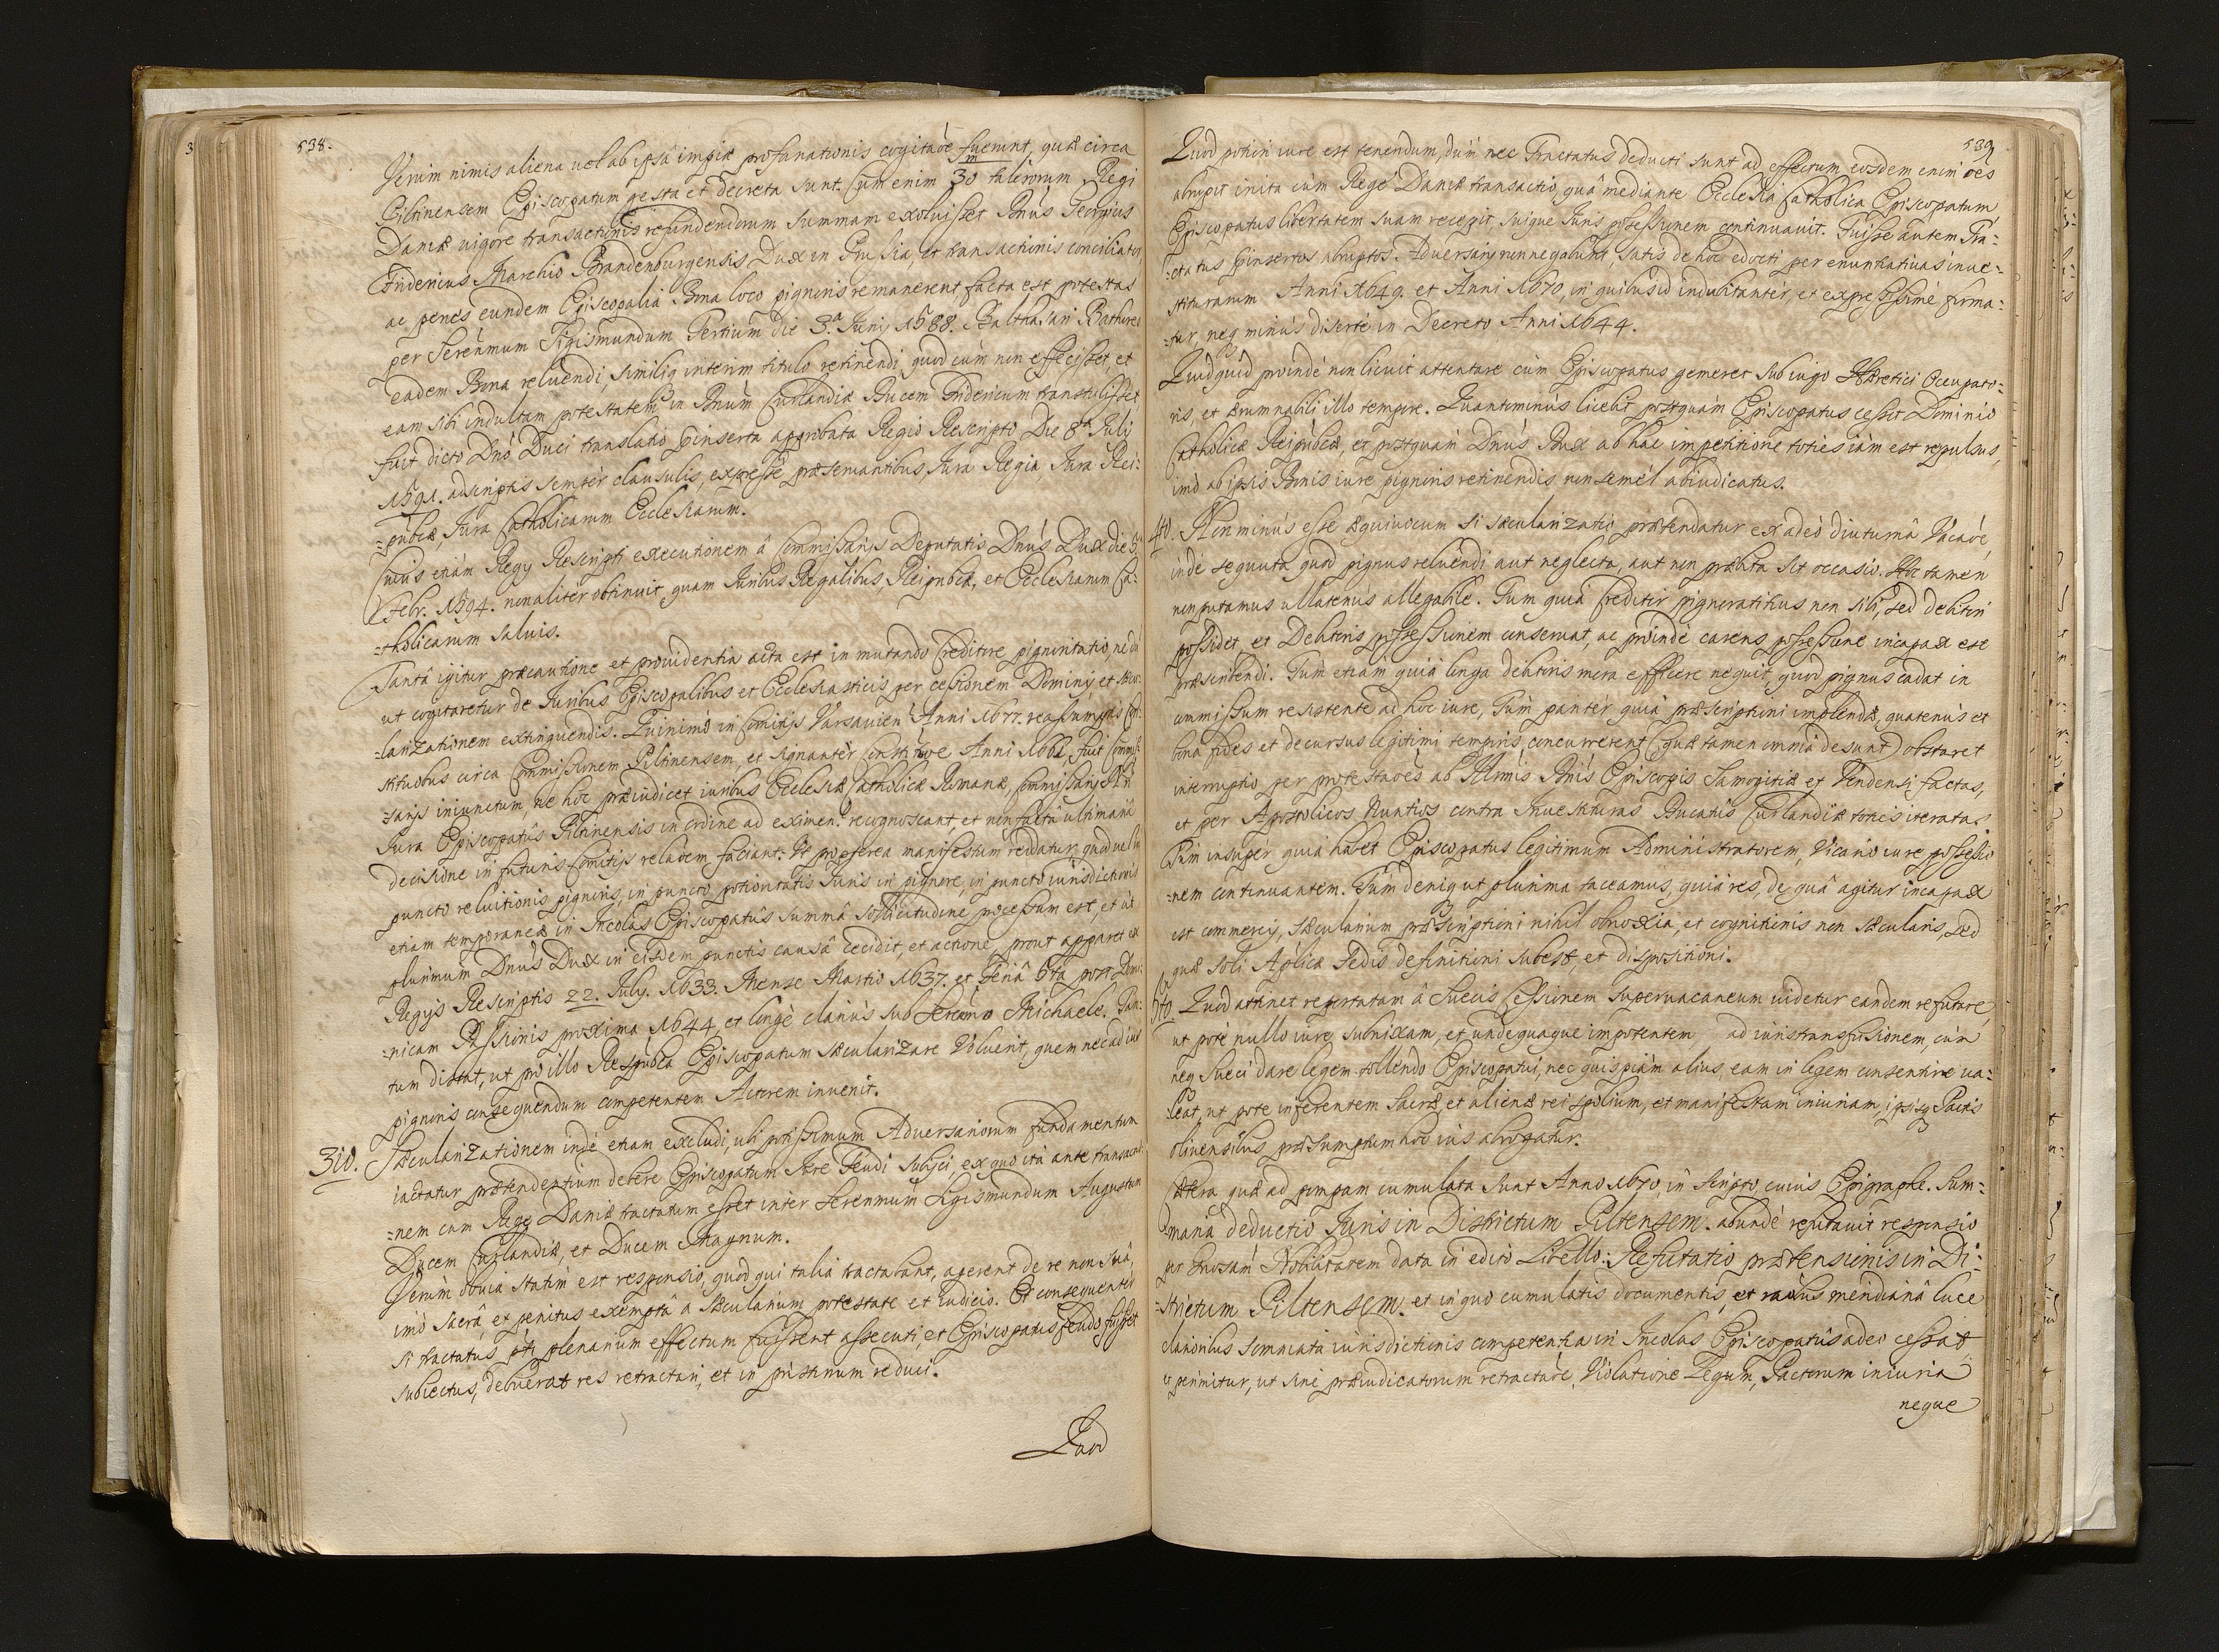 538.
Verùm nimis aliena vel ab ipsâ impiæ profanationis cogitaõe fuerint, quæ circa
Piltinensem Episcopatum gesta et decreta sunt. Cum enim 30 m talerorum Regi
Daniæ vigore transactionis refundendorum summam exoluisset Dnús Georgius
Fridericus Marchio Brandenburgensis Dux in Prussia, et transactionis conciliator
ac penes eundem Episcopalia Bona loco pignoris remanerent facta est potestas
per Serenmum Sigismundum Tertium die 3.a Iunij 1588. Balthasari Bathoreo
eadem Bona reluendi, similiq interim titulo retinendi, quod cùm non effecisset, et
eam sibi indultam potestatem in Dnúm Curlandiæ Ducem Fridericum transtulisset
fuit dicto Dnó Duci translatio pinserta approbata Regio Rescripto Die 8va Iulij
1591. adscriptis semper clausulis, expressè præservantibus, Iura Regia, Iura Rei-
-publicæ, Iura Catholicarum Ecclesiarum.
Cuius etiàm Regij Rescripti executionem â Commissarijs Deputatis Dnús Dux die 5.
Febr. 1594. non aliter obtinuit, quam Iuribus Regalibus, Reipublcæ, et Ecclesiarum Ca-
-tholicarum salvis.
Tantâ igitur præcautione et providentia acta est in mutando Creditore pignoratitio, nedũ
ut cogitaretur de Iuribus Episcopalibus et Ecclesiasticis per cessionem Dominij, et sæcu-
-larizationem extinguendis. Quinimò in Comitijs Varsavien Anni 1677. reassumptis Con-
stitutionibus circa Commissionem Piltinensem, et signantèr Constitũoe Anni 1661, fuit Commis-
-sarijs iniunctum, ne hoc præiudicet iuribus Ecclesiæ Catholicæ Romanæ, Commissarijs
Iura Episcopatûs Piltinensis in ordine ad eximen. recognoscant, et non factâ ultimariâ
decisione in futuris Comitijs relaõem faciant. Ut propterea manifestum reddatur, quod vel in
puncto reluitionis pignoris, in puncto potioritatis Iuris in pignore, in puncto iurisdictionis
etiam temporaneæ in Incolas Episcopatûs summâ sollicitudine processum est, et ut
plurimum Dnús Dux in eisdem punctis causâ cecidit, et actione, prout apparet ex
Regijs Rescriptis 22. Iulij. 1633. Mense Martio 1637. et Feriâ 6ta post Domi-
-nicam Passionis proxima 1644, et longè clariùs sub Serenmo Michaele. Tan-
tum distat, ut pro illo Respublca Episcopatum sæcularizare voluerit, quem nec ad ius
pignoris consequendum competentem Actorem invenit.
3tiò. Sæcularizationem indè etiam excludi, ubi potissimum Adversariorum fundamentum
iactatur prætendentium debere Episcopatum Iure Feudi subijci, ex quo ità ante transactio-
-nem cum Rege Daniæ tractatum esset inter Serenmum Sigismundum Augustum
Ducem Curlandiæ, et Ducem Magnum.
Verùm obvia statìm est responsio, quod qui talia tractabant, agerent de re non suâ,
imò Sacrâ, et penitus exemptâ a sæcularium potestate et iudicio. Et consequenter
si tractatus pti plenarium effectum fuissent assecuti, et Episcopatus feudo fuisset
subiectus, debuerat res retractari, et in pristinum reduci.
Quod
539
Quod potiori iure est tenendum, dùm nec Tractatus deducti sunt ad effectum, eosdem enim oẽs
abrupit inita cùm Rege Daniæ transactio, quâ mediante Ecclesia Catholica Episcopatum
Episcopatus libertatem suam recepit, suique Iuris possessionem continuavit. Fuisse autem Tra-
-ctatus pinsertos, abruptos Adversarij non negabunt, satis de hoc edocti per enuntiativas inve-
stiturarum Anni 1649. et Anni 1670, in quibus id indubitantèr, et expressissimè firma-
-tur, neq minùs disertè in Decreto Anni 1644.
Quidquid proindè non licuit attentare cùm Episcopatus gemeret sub iugo Hæretici Occupato-
ris, et ærumnabili illo tempore. Quantominùs licebit postquàm Episcopatus cessit Dominio
Catholicæ Reipublcæ, et postquàm Dnús Dux ab hac impetitione toties iàm est repulsus,
imò ab ipsis Bonis iure pignoris retinendis non semèl abiudicatus.
4tò. Non minùs esse æquivocum si sæcularizatio prætendatur ex adeò diuturnâ Vacaõe,
indè sequuta, quod pignus reluendi aut neglecta, aut non præbita sit occasio. Hoc tamen
non putamus ullatenus allegabile. Tum quià Creditor pigneratitius non sibi, sed debitori
possidet, et Debitoris possessionem conservat, ac proindè carens possessione incapax est
præscribendi. Tum etiam quià longa debitoris mora efficere nequit, quod pignus cadat in
commissum resistente ad hoc iure, Tùm pariter quià præscriptioni implendæ, quatenùs et
bona fides et decursus legitimi temporis, concurrerent (quæ tamen omnia desunt) obstaret
interruptio per protestaões ab Illmis Dnis Episcopis Samogitiæ et Vendensi factas,
et per Apostolicos Nuntios contra Investituras Ducatûs Curlandiæ toties iteratas.
Tùm insuper quià habet Episcopatus legitimum Administratorem, Vicario iure possessio-
-nem continuantem. Tùm deniq ut plurima taceamus, quià res, de quâ agitur incapax
est commercij, sæcularium præscriptioni nihil obnoxia, et cognitionis non sæcularis, sed
quæ soli Aplicæ Sedis definitioni subest, et dispositioni.
5tò Quod attinet reportatam â Suecis Cessionem supervacaneum videtur eandem refutare,
ut potè nullo iure subnixam, et undequaque impotentem ad iuris transfusionem, cùm
neq Sueci dare legem tollendo Episcopatui, nec quispiàm alius, eam in legem consentire va-
-leat, ut pote inferentem Sacræ, et alienæ rei spolium, et manifestam iniuriam, ipsisq Pactis
olivensibus præsumptum hoc ius abrogatur.
Cætera quæ ad pompam cumulata sunt Anno 1670, in scripto, cuius Epigraphe. Sum-
-maria deductio Iuris in Districtum Piltensem. abundè refutavit responsio
per Gnosam Nobilitatem data in edito Libello: Refutatio prætensionis in Di-
-strictum Piltensem. et in quo cumulatis documentis, et raõibus meridianâ luce
clarioribus somniata iurisdictionis competentia in Incolas Episcopatûs adeo cessat
et perimitur, ut sine præiudicatorum retractaõe, Violatione Legum, Pactorum iniuria
neque